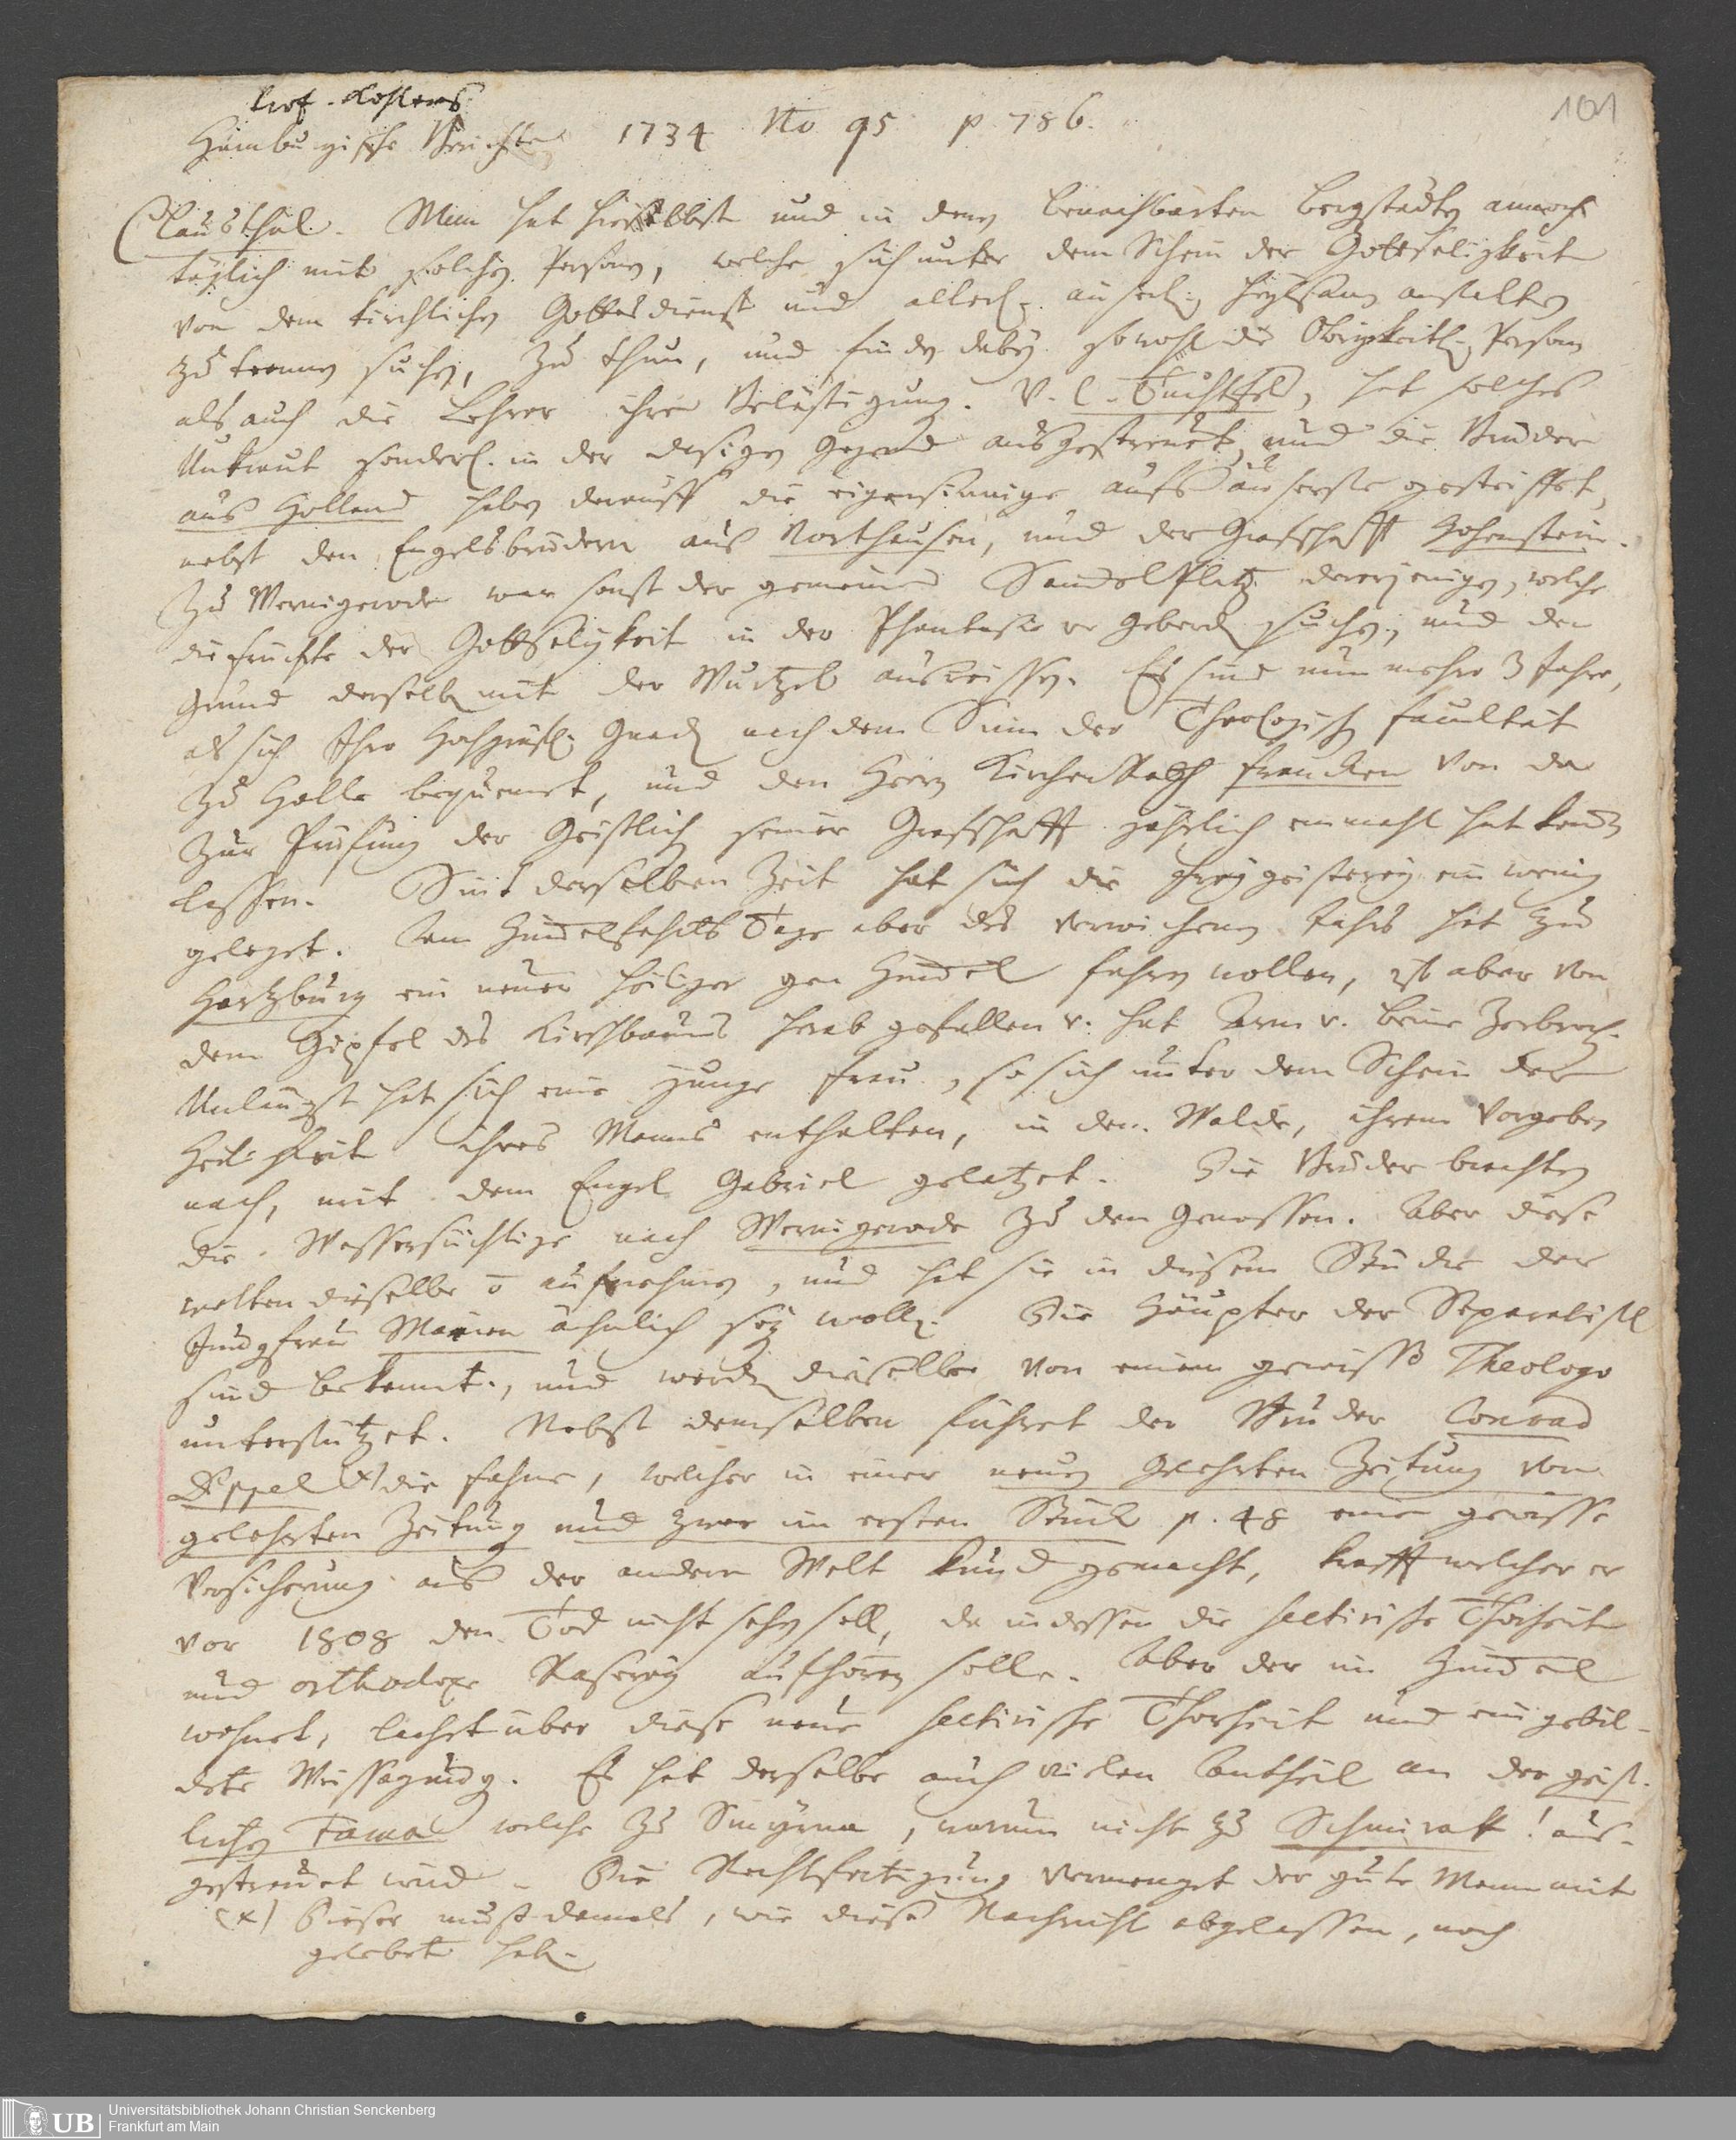 101
Prof. Kohlers
Hamburgische Berichte 1734 No 95 p. 786.
Clausthal. Man hat hieselbst und in denen benachbarten Bergstädten annoch
täglich mit solchen Personen, welche sich unter dem Schein der Gottseligkeit
von dem kirchlichen Gottesdienst und allerley andern heylsamen anstalten
zu trennen suchen, zu thun, und finden dabey sowohl die Obrigkeitl. Personen
als auch die Lehrer ihre Belästigung. V. C. Tuchtfeld, hat solches
Unkraut sonderl. in der dasigen Gegend ausgestreuet, und die Brüder
aus Holland haben darauff die eigensinnige aufs äusserste gesteiffet,
nebst den Engelsbrüdern aus Northausen, und der Graffschafft Hohenstein.
Zu Wernigerode war sonst der gemeine Samelplatz derjenigen, welche
die Früchte der Gottseligkeit in der Phantasie v. Geberden suchen, und den
Grund derselben mit der Wurtzel ausreissen. Es sind nun mehro 3 Jahre,
als sich Ihro Hochgräfl. Gnaden nach dem Sinn der Theologischen Facultät
zu Halle bequemet, und den Herrn Kirchen Rath Francken von da
zur Prüfung der Geistlichen seiner Graffschafft jährlich einmahl hat kommen
lassen. Sint derselben Zeit hat sich die Freygeisterey ein wenig
geleget. Am Himmelfahrts Tage aber des verwichenen Jahrs hat zu
Hartzburg ein neuer Heiliger gen Himmel fahren wollen, ist aber von
dem Gipfel des Kirschbaums herab gefallen v. hat Arm v. Beine zerbrochen.
Unlängst hat sich eine junge Frau, so sich unter dem Schein der
Heiligkeit ihres Mannes enthalten, in dem Walde, ihrem Vorgeben
nach, mit dem Engel Gabriel geletzet. Die Brüder brachten
die Wassersüchtige nach Wernigerode zu den Genossen. Aber diese
wolten dieselbe aufnehmen, und hat sie in diesem Stücke der
Jungfrau Marien ähnlich seyn wollen. Die Häupter der Separatisten
sind bekannt, und werden dieselben von einem gewissen Theologo
unterstützet. Nebst demselben führet der Bruder Conrad
Dippel (x) die Fahne, welcher in einer neuen Gelehrten Zeitung von
gelehrten Zeitung und zwar im ersten Stück p. 48 eine gewisse
Versicherung aus der andern Welt kund gemacht, krafft welcher er
vor 1808 den Tod nicht sehen soll, da indessen die sectirische Thorheit
und orthodoxe Raserey aufhören solle. Aber der im Himmel
wohnet, lachet über diese neue sectirische Thorheit und eingebil-
dete Weissagung. Es hat derselbe auch vielen Antheil an der geist-
lichen Fama welche zu Smyrna, warum nicht zu Schmirak! aus-
gestreuet wird. Die Rechtfertigung vermenget der gute Mann mit
(x) Dieser muss damals, wie diese Nachricht abgelassen, noch
gelebet haben.
Universitätsbibliothek Johann Christian Senckenberg
Frankfurt am Main
UB